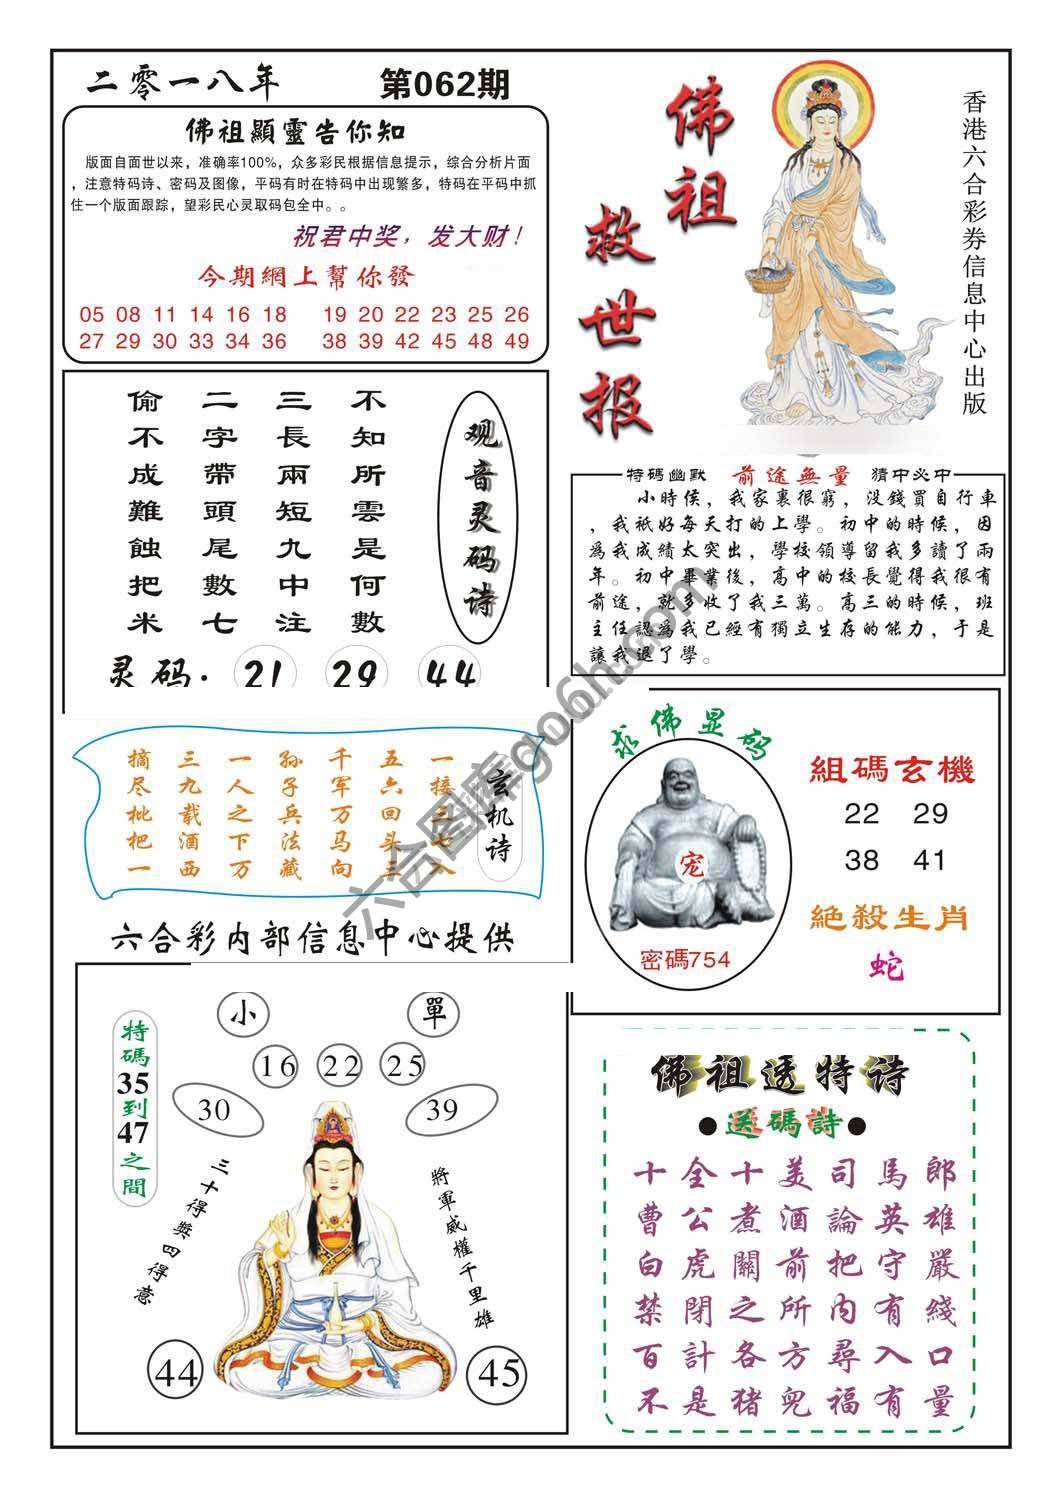 二零一八年 第062期
佛祖顯靈告你知
版面自面世以来，准确率100%，众多彩民根据信息提示，综合分析片面
，注意特码诗、密码及图像，平码有时在特码中出现繁多，特码在平码中抓
住一个版面跟踪，望彩民心灵取码包全中。。
祝君中奖，发大财！
今期網上幫你發
05 08 11 14 16 18 19 20 22 23 25 26
27 29 30 33 34 36 38 39 42 45 48 49
佛祖
救世报
香港六合彩券信息中心出版
观音灵码诗
不知所雲是何數
三長兩短九中注
二字帶頭尾數七
偷不成難蝕把米
灵码. 21 29 44
特碼幽默 前途無量 猜中必中
小時侯，我家裏很窮，没錢買自行車
，我祇好每天打的上學。初中的時候，因
為我成績太突出，學校領導留我多讀了兩
年。初中畢業後，高中的校長覺得我很有
前途，就多收了我三萬。高三的時候，班
主任認為我已經有獨立生存的能力，于是
讓我退了學。
玄机诗
一接三七八
五六回头三
千军万马向
孙子兵法藏
一人之下万
三九载酒西
摘尽枇把一
六合彩内部信息中心提供
求佛显码
宠
密碼754
組碼玄機
22 29
38 41
絕殺生肖
蛇
小 單
16 22 25
30 39
特碼35到47之間
三十得獎四得意
將軍威權千里雄
44 45
佛祖透特诗
●送碼詩●
十全十美司馬郎
曹公煮酒論英雄
白虎關前把守嚴
禁閉之所内有綫
百計各方尋入口
不是猪兜福有量
六合图库go6h.com